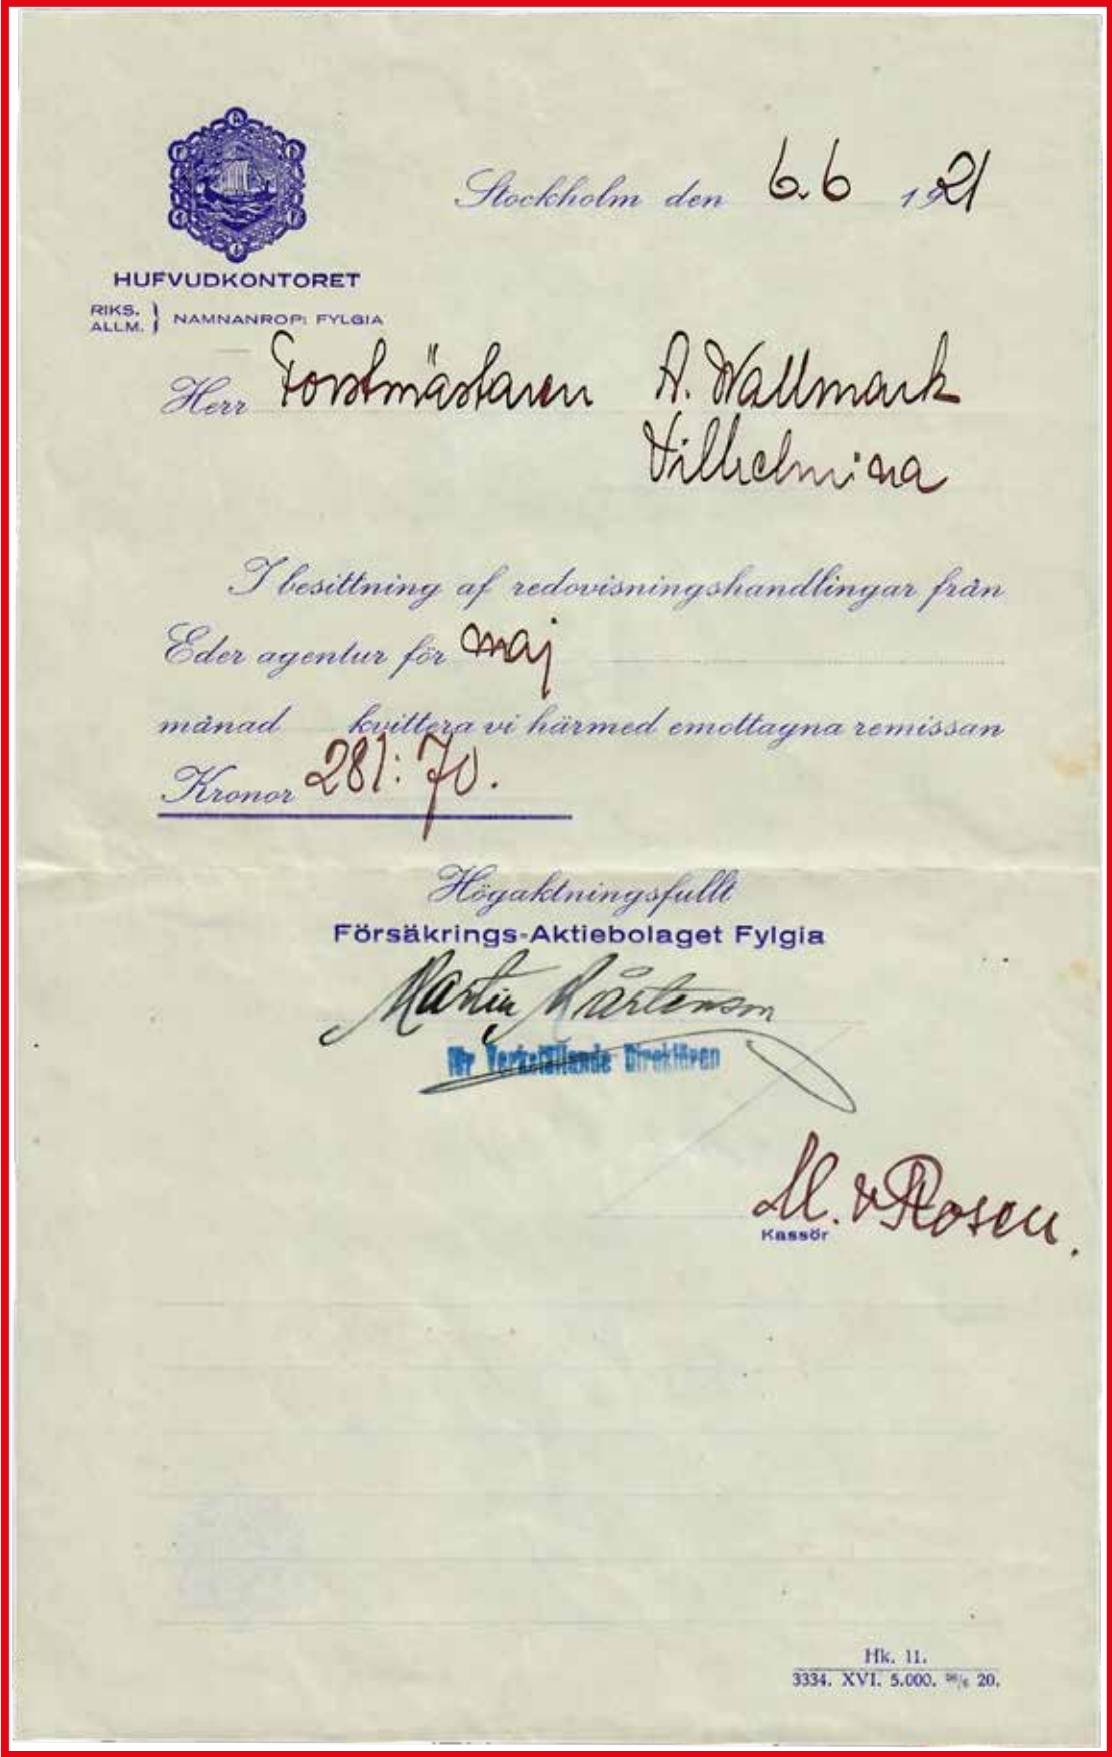 Stockholm den 6.6 1921
HUFVUDKONTORET
RIKS. } NAMNANROP: FYLGIA
ALLM.
Herr Forstmästaren A. Wallmark
Vilhelmina
I besittning af redovisningshandlingar från
Eder agentur för maj
månad kvittera vi härmed emottagna remissan
Kronor 281:70.
Högaktningsfullt
Försäkrings-Aktiebolaget Fylgia
Martin Mårtenson
för Verkställande Direktören
M. v Rosen.
Kassör
Hk. 11.
3334. XVI. 5.000. 20.